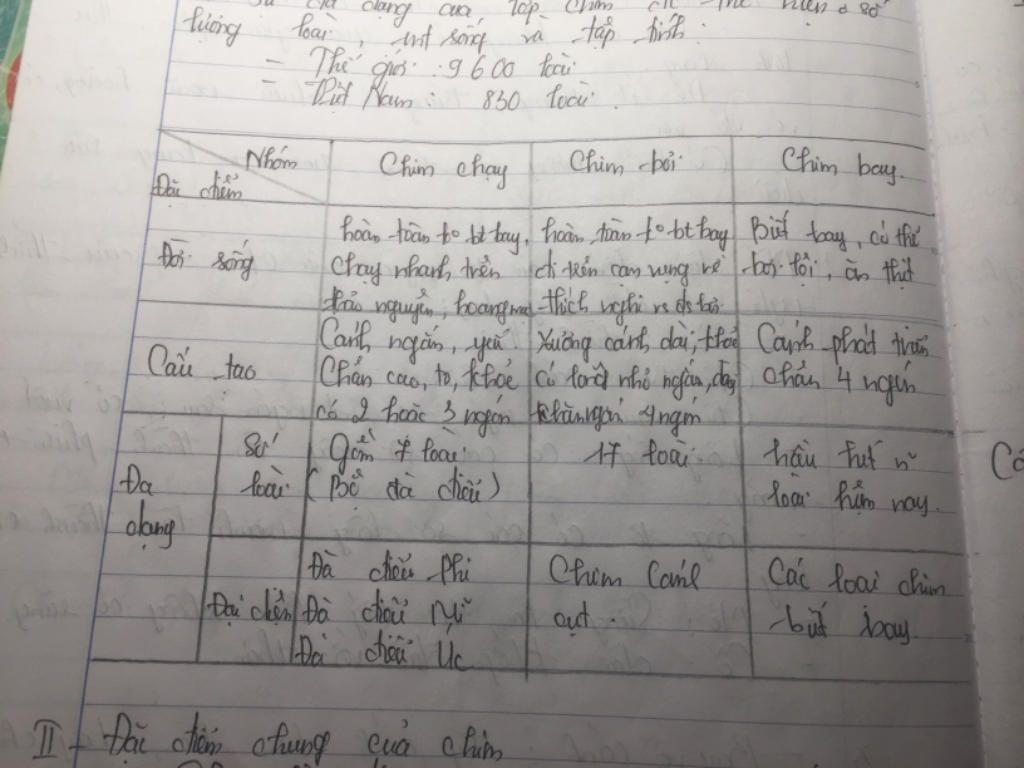 dạng của lớp chim thể hiện ở số
lượng loài, mt sống và tập tính.
- Thế giới: 9600 loài
- Việt Nam: 830 loài.
Nhóm
Đặc điểm
Chim chạy
Chim bơi
Chim bay.
Đời sống
hoàn toàn ko bt bay,
chạy nhanh trên
thảo nguyên, hoang mạc
hoàn toàn ko bt bay
đi trên cạn vụng về
thích nghi vs đs bơi
Biết bay, có thể
bơi lội, ăn thịt
Cấu tạo
Cánh ngắn, yếu
Chân cao, to, khỏe
có 2 hoặc 3 ngón
Xương cánh dài, khỏe
có lông nhỏ ngắn, dày
4 ngón
Cánh phát triển
chân 4 ngón
Đa
dạng
Số
loài
Gồm 7 loài
(Bộ đà điểu)
17 loài
hầu hết
loài hiện nay.
Đại diện
Đà điểu Phi
Đà điểu Mĩ
Đà điểu Úc
Chim cánh
cụt.
Các loài chim
biết bay
II - Đặc điểm chung của chim